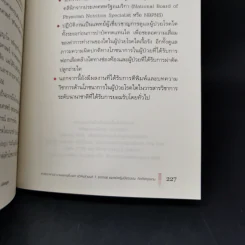 คลินิกจากประเทศสหรัฐอเมริกา (National Board of
Physician Nutrition Specialist หรือ NBPNS)
• ปฏิบัติงานในทีมแพทย์ผู้เชี่ยวชาญการดูแลผู้ป่วยโรคไต
ตั้งแต่ระยะก่อนการบำบัดทดแทนไต เพื่อชะลอความเสื่อม
ของการทำงานของไตในผู้ป่วยโรคไตเรื้อรัง อีกทั้งดูแล
ภาวะความผิดปกติทางโภชนาการในผู้ป่วยที่ได้รับการ
ฟอกเลือดล้างไตทางช่องท้องและผู้ป่วยที่ได้รับการผ่าตัด
ปลูกถ่ายไต
• นอกจากนี้ยังมีผลงานที่ได้รับการตีพิมพ์และบทความ
วิชาการด้านโภชนาการในผู้ป่วยโรคไตในวารสารวิชาการ
ระดับนานาชาติที่ได้รับการยอมรับโดยทั่วไป
227